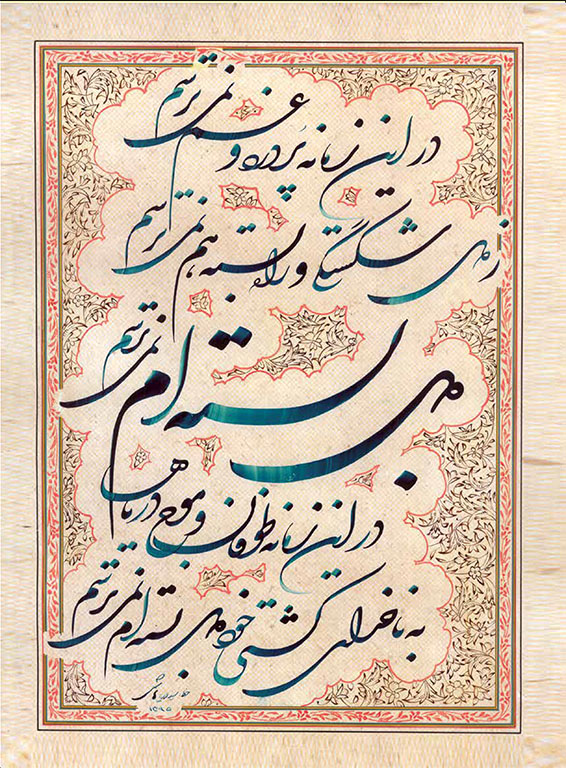 در این زمانه پُر درد و غم نمی ترسم
ز دل شکستگی و راه بسته هم نمی ترسم
دل بسته ام نمی ترسم
در این زمانه طوفان و موج دریاها
به ناخدای کشتی خود دل بسته ام نمی ترسم
۱۳۹۵